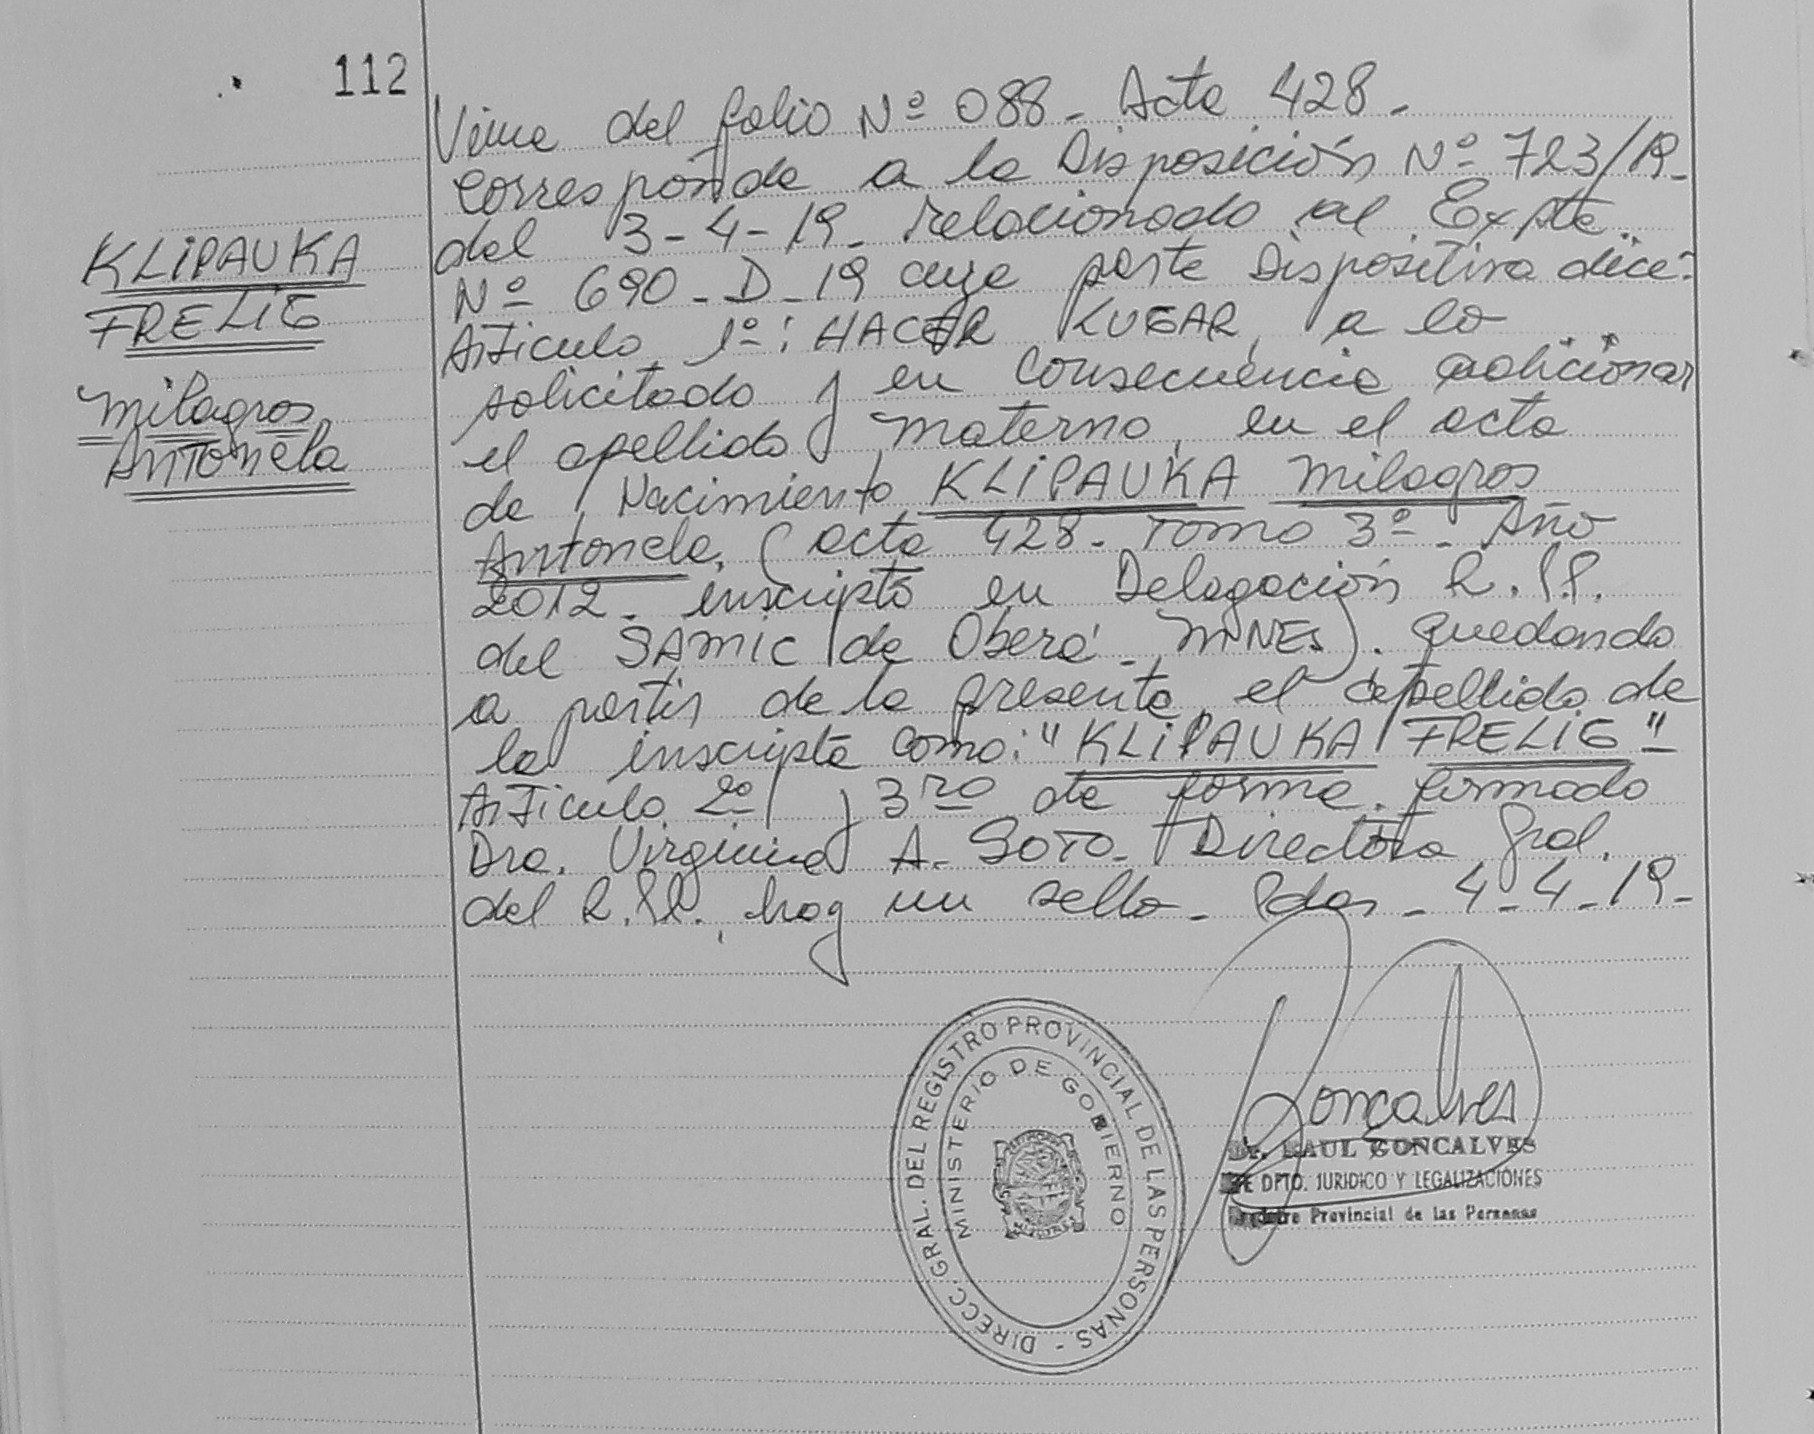 112
Viene del folio Nº 088 - Acta 428 -
Corresponde a la Disposición Nº 723/19 -
del 3-4-19 - relacionado al Expte.
Nº 690 - D - 19 cuya parte Dispositiva dice:
Articulo 1º: HACER LUGAR, a lo
solicitado y en consecuencia adicionar
el apellido materno, en el acta
de Nacimiento KLIPAUKA Milagros
Antonela, (acta 428 - Tomo 3º - Año
2012 - inscripta en Delegación R.P.P.
del SAMIC de Oberá - MNES). quedando
a partir de la presente, el apellido de
la inscripta como: "KLIPAUKA FRELIG" -
Articulo 2º y 3ro de forma. firmado
Dra. Virginia A. SOTO - Directora Gral.
del R.P.P., hay un sello - Pdas - 4-4-19 -
KLIPAUKA
FRELIG
Milagros
Antonela
DIRECC. GRAL. DEL REGISTRO PROVINCIAL DE LAS PERSONAS -
MINISTERIO DE GOBIERNO
Goncalves
Dr. RAUL GONCALVES
DPTO. JURIDICO Y LEGALIZACIONES
Provincial de las Personas